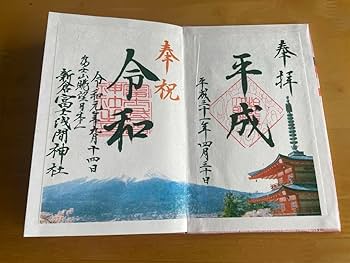 奉拝
平成
平成三十一年四月三十日
奉祝
令和
令和元年九月十四日
日本一
新倉富士浅間神社